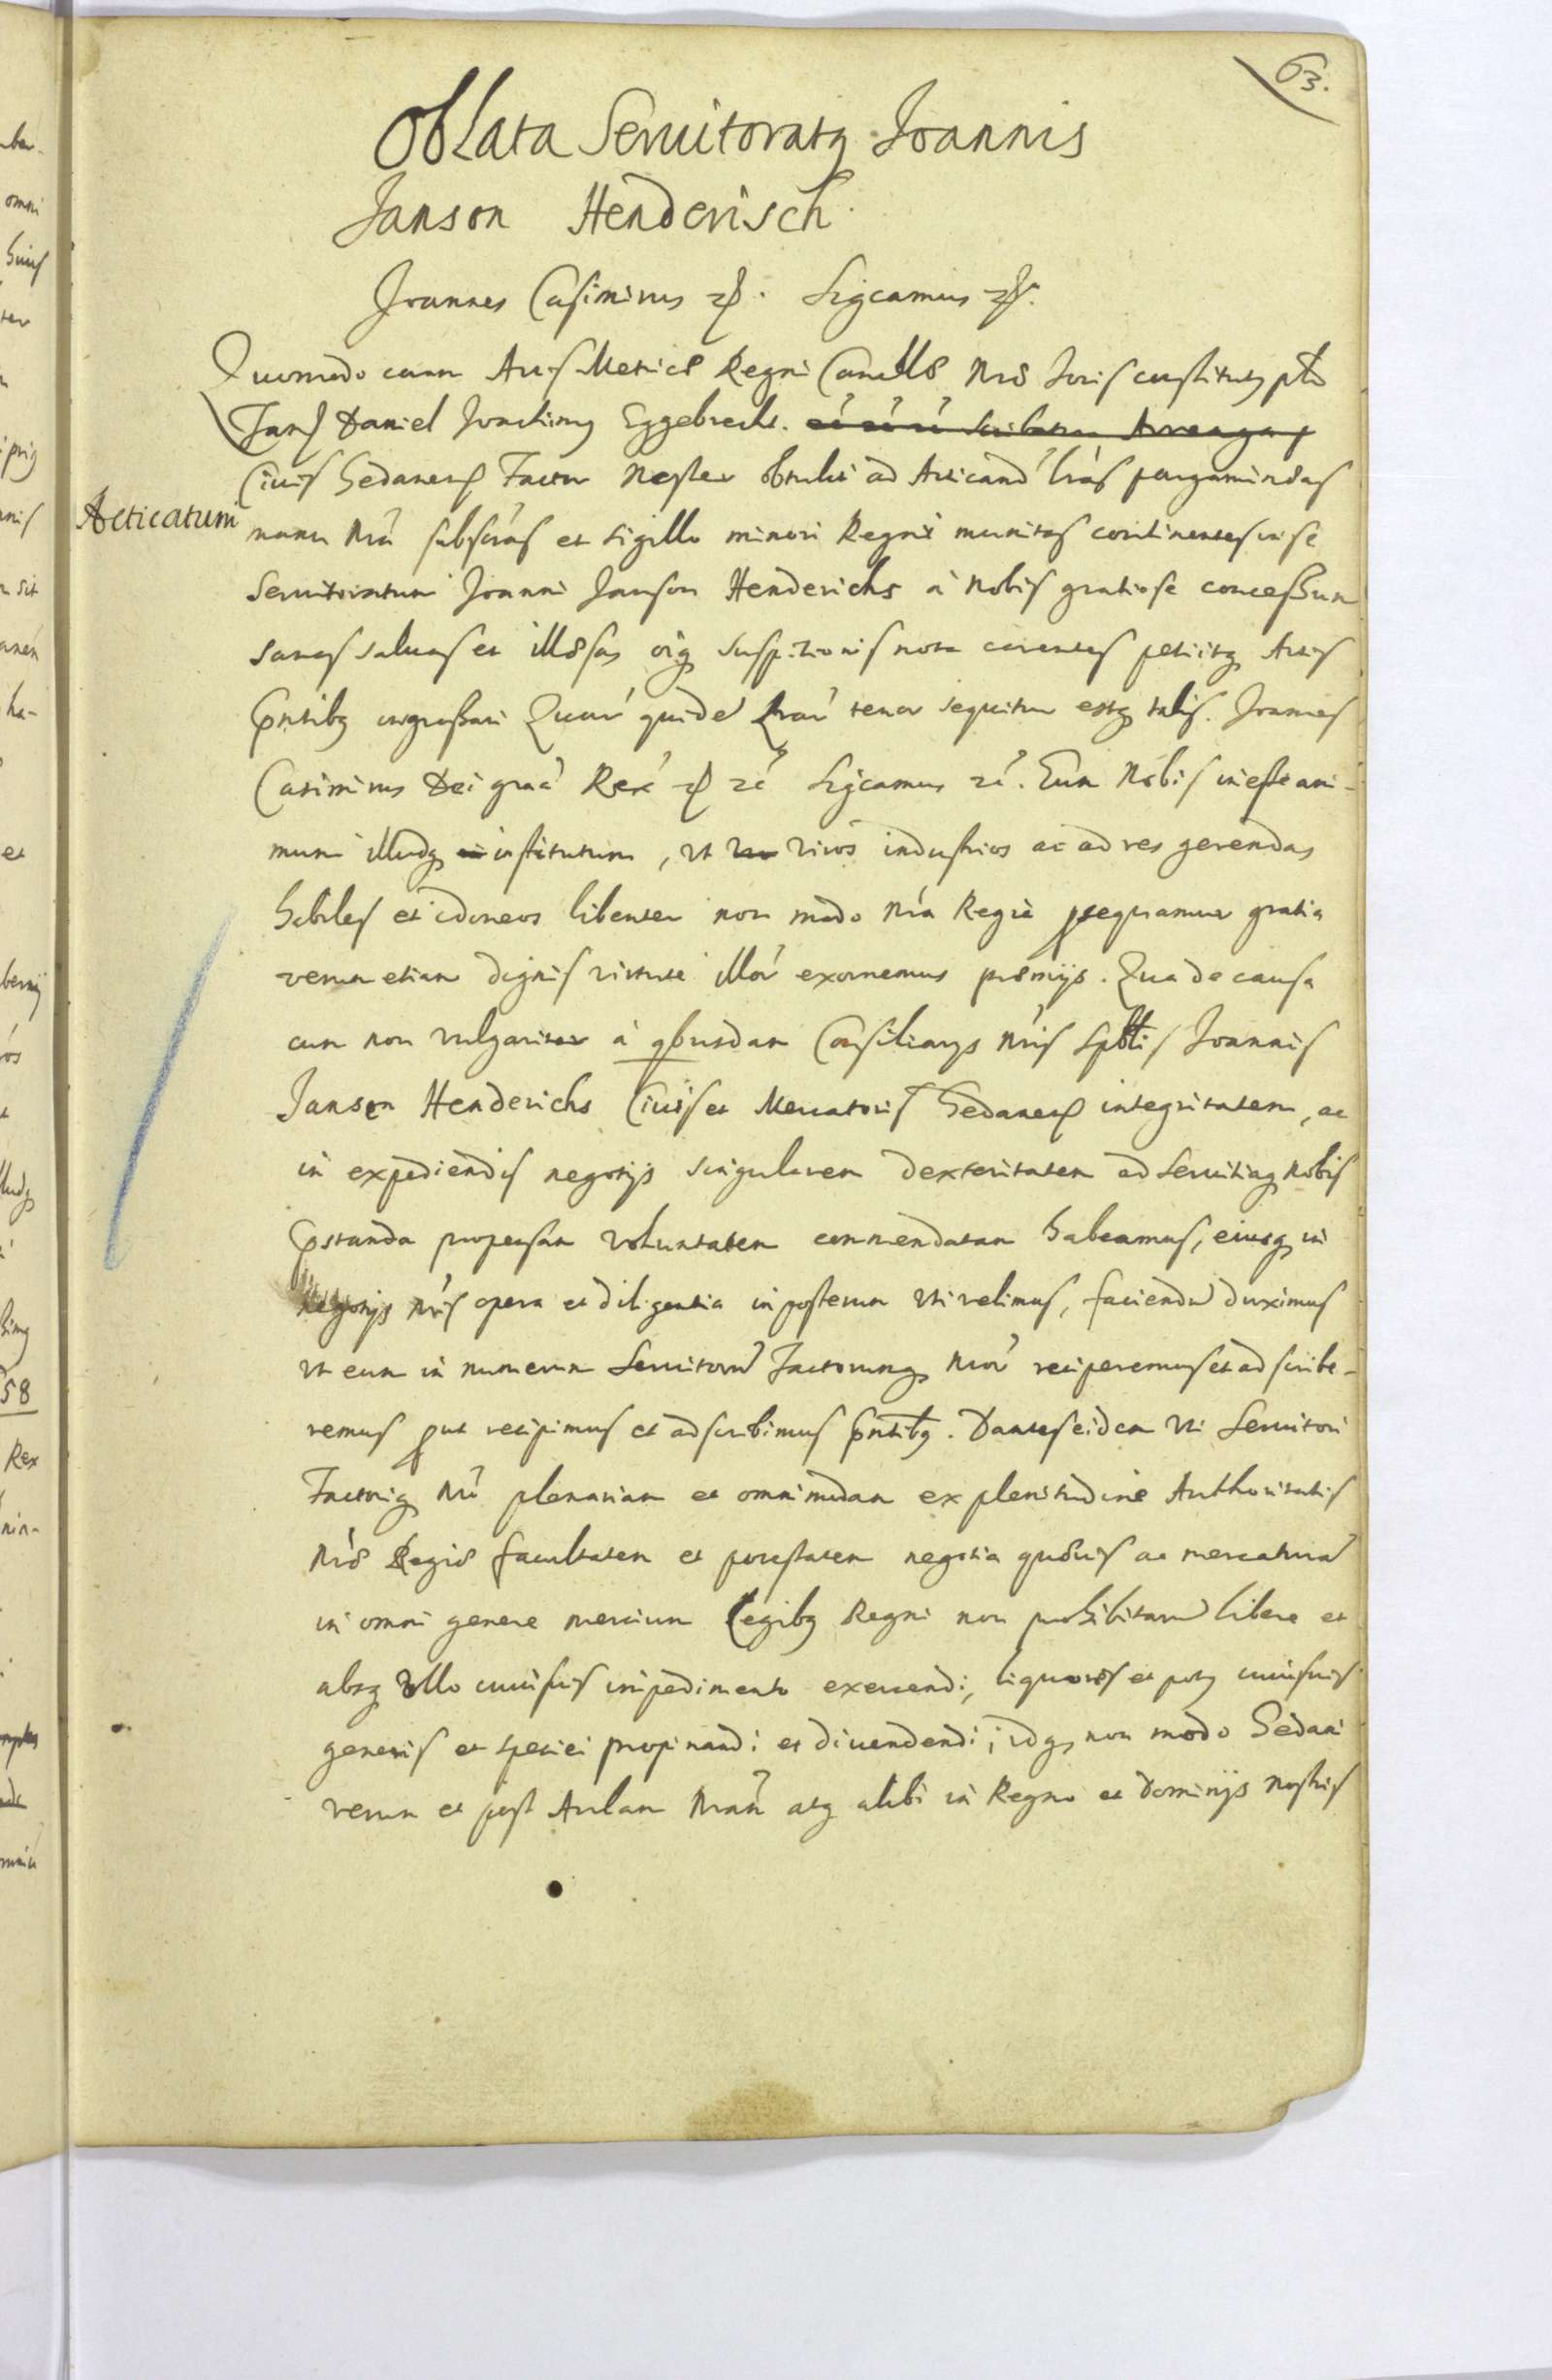 63.
Oblata Seruitoratq Joannis
Janson Henderisch.
Joannes Casimirus Sigcamus
Quomodo coram Actis Metrices Regni Cancells Nrs
Daniel Joachimq Eggebrecht.
Ciuis Gedanens Factor Noster obtulit ad Acticand lras pargamineas
Acticatum
manu Nra subscras et sigillo minori Regni munitas continentes in se
Seruitoratum Joanni Janson Henderichs à Nobis gratiose concessum
sanas saluas et illæsas oiq suspitionis nota carentes petiitq Actis
pntibq ingrossari Quar quidē lrar tenor sequitur estq talis. Joannes
Casimirus Dei gra Rex Sigcamus. Eum Nobis inesse ani-
mum illudq institutum, vt viros industrios ac ad res gerendas
habiles et idoneos libenter non modo nra Regia prosequamur gratia
verum etiam dignis virtute illor exornemus præmijs. Qua de causa
cum non vulgariter à qbusdam Consiliarys nris Joannis
Janson Henderichs Ciuis et Mercatoris Gedanens integritatem, ac
in expediendis negotijs singularem dexteritatem ad seruitiaq nobis
pstanda propensam voluntatem commendatam habeamus, eiusq in
negotijs nris opera et diligentia in posterum vti velimus, faciendū duximus
vt eum in numerum Seruitorū Factorumq nror reciperemus et adscribe-
remus put recipimus et adscribimus pntibq. Dantes eidem vti Seruitori
Factoriq Nro plenariam et omnimodam ex plenitudine Authoritatis
Nræ Regiæ facultatem et potestatem negotia quæuis ac mercaturā
in omni genere mercium Legibq Regni non prohibitarū libere et
absq vllo cuiusuis impedimento exercendi, liquores et potq cuiusuis
generis et speciei propinandi et diuendendi; idq non modo Gedani
verum et post Aulam Nram atq alibi in Regno et Dominijs nostris